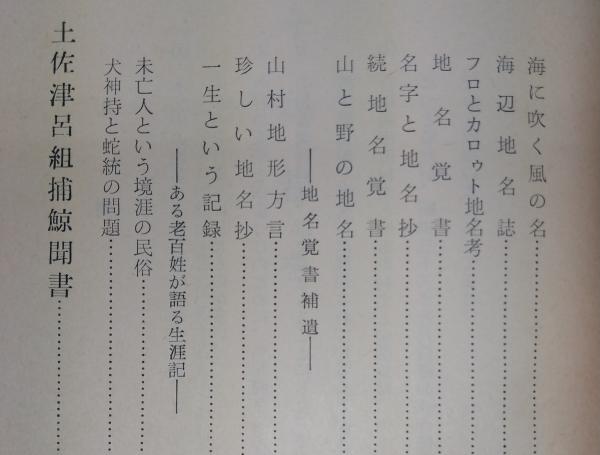 海に吹く風の名
海辺地名誌
フロとカロゥト地名考
地名覚書
名字と地名抄
続地名覚書
山と野の地名
――地名覚書補遺――
山村地形方言
珍しい地名抄
一生という記録
――ある老百姓が語る生涯記――
未亡人という境涯の民俗
犬神持と蛇統の問題
土佐津呂組捕鯨聞書